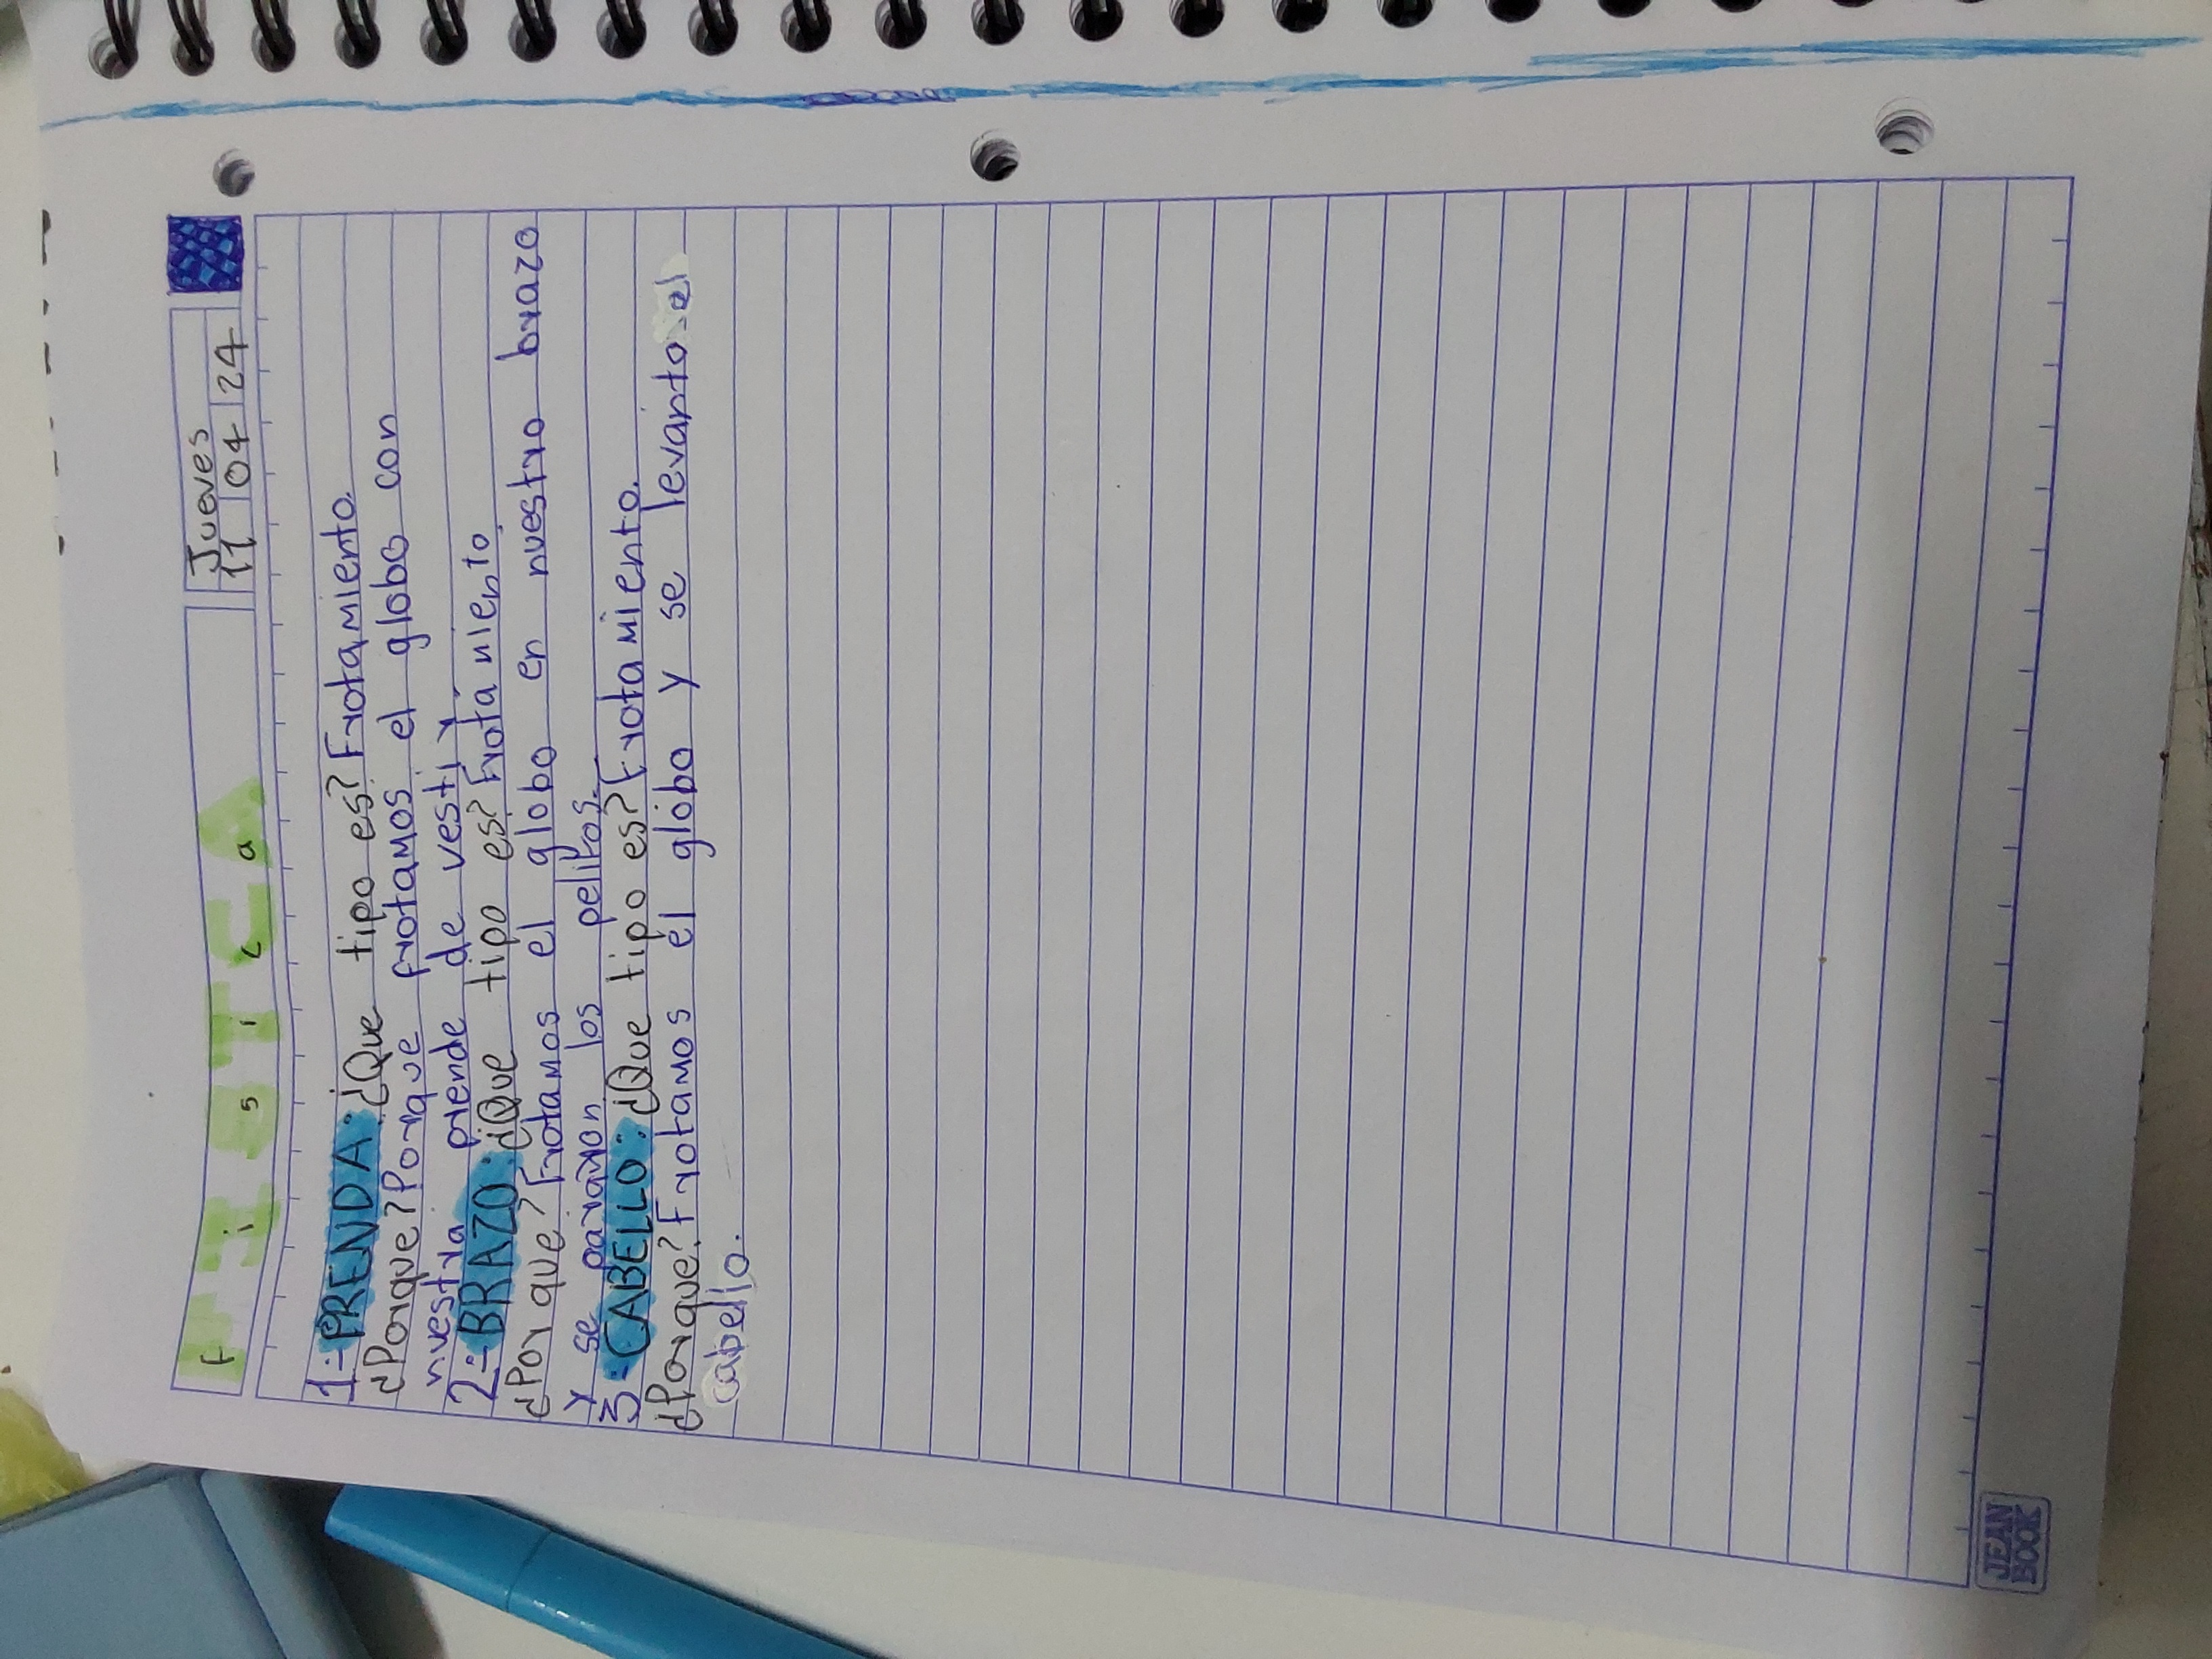 FISICA
F i s i c a
Jueves
11 04 24
1-PRENDA: ¿Que tipo es? Frotamiento.
¿Porque? Porque frotamos el globo con
nuestra prende de vestir
2-BRAZO: ¿Que tipo es? Frotaniento.
¿Por que? Frotamos el globo en nuestro brazo
y se pararon los pelitos.
3-CABELLO: ¿Que tipo es? Frotamiento.
¿Porque? Frotamos el globo y se levanto el
cabello.
JEAN
BOOK